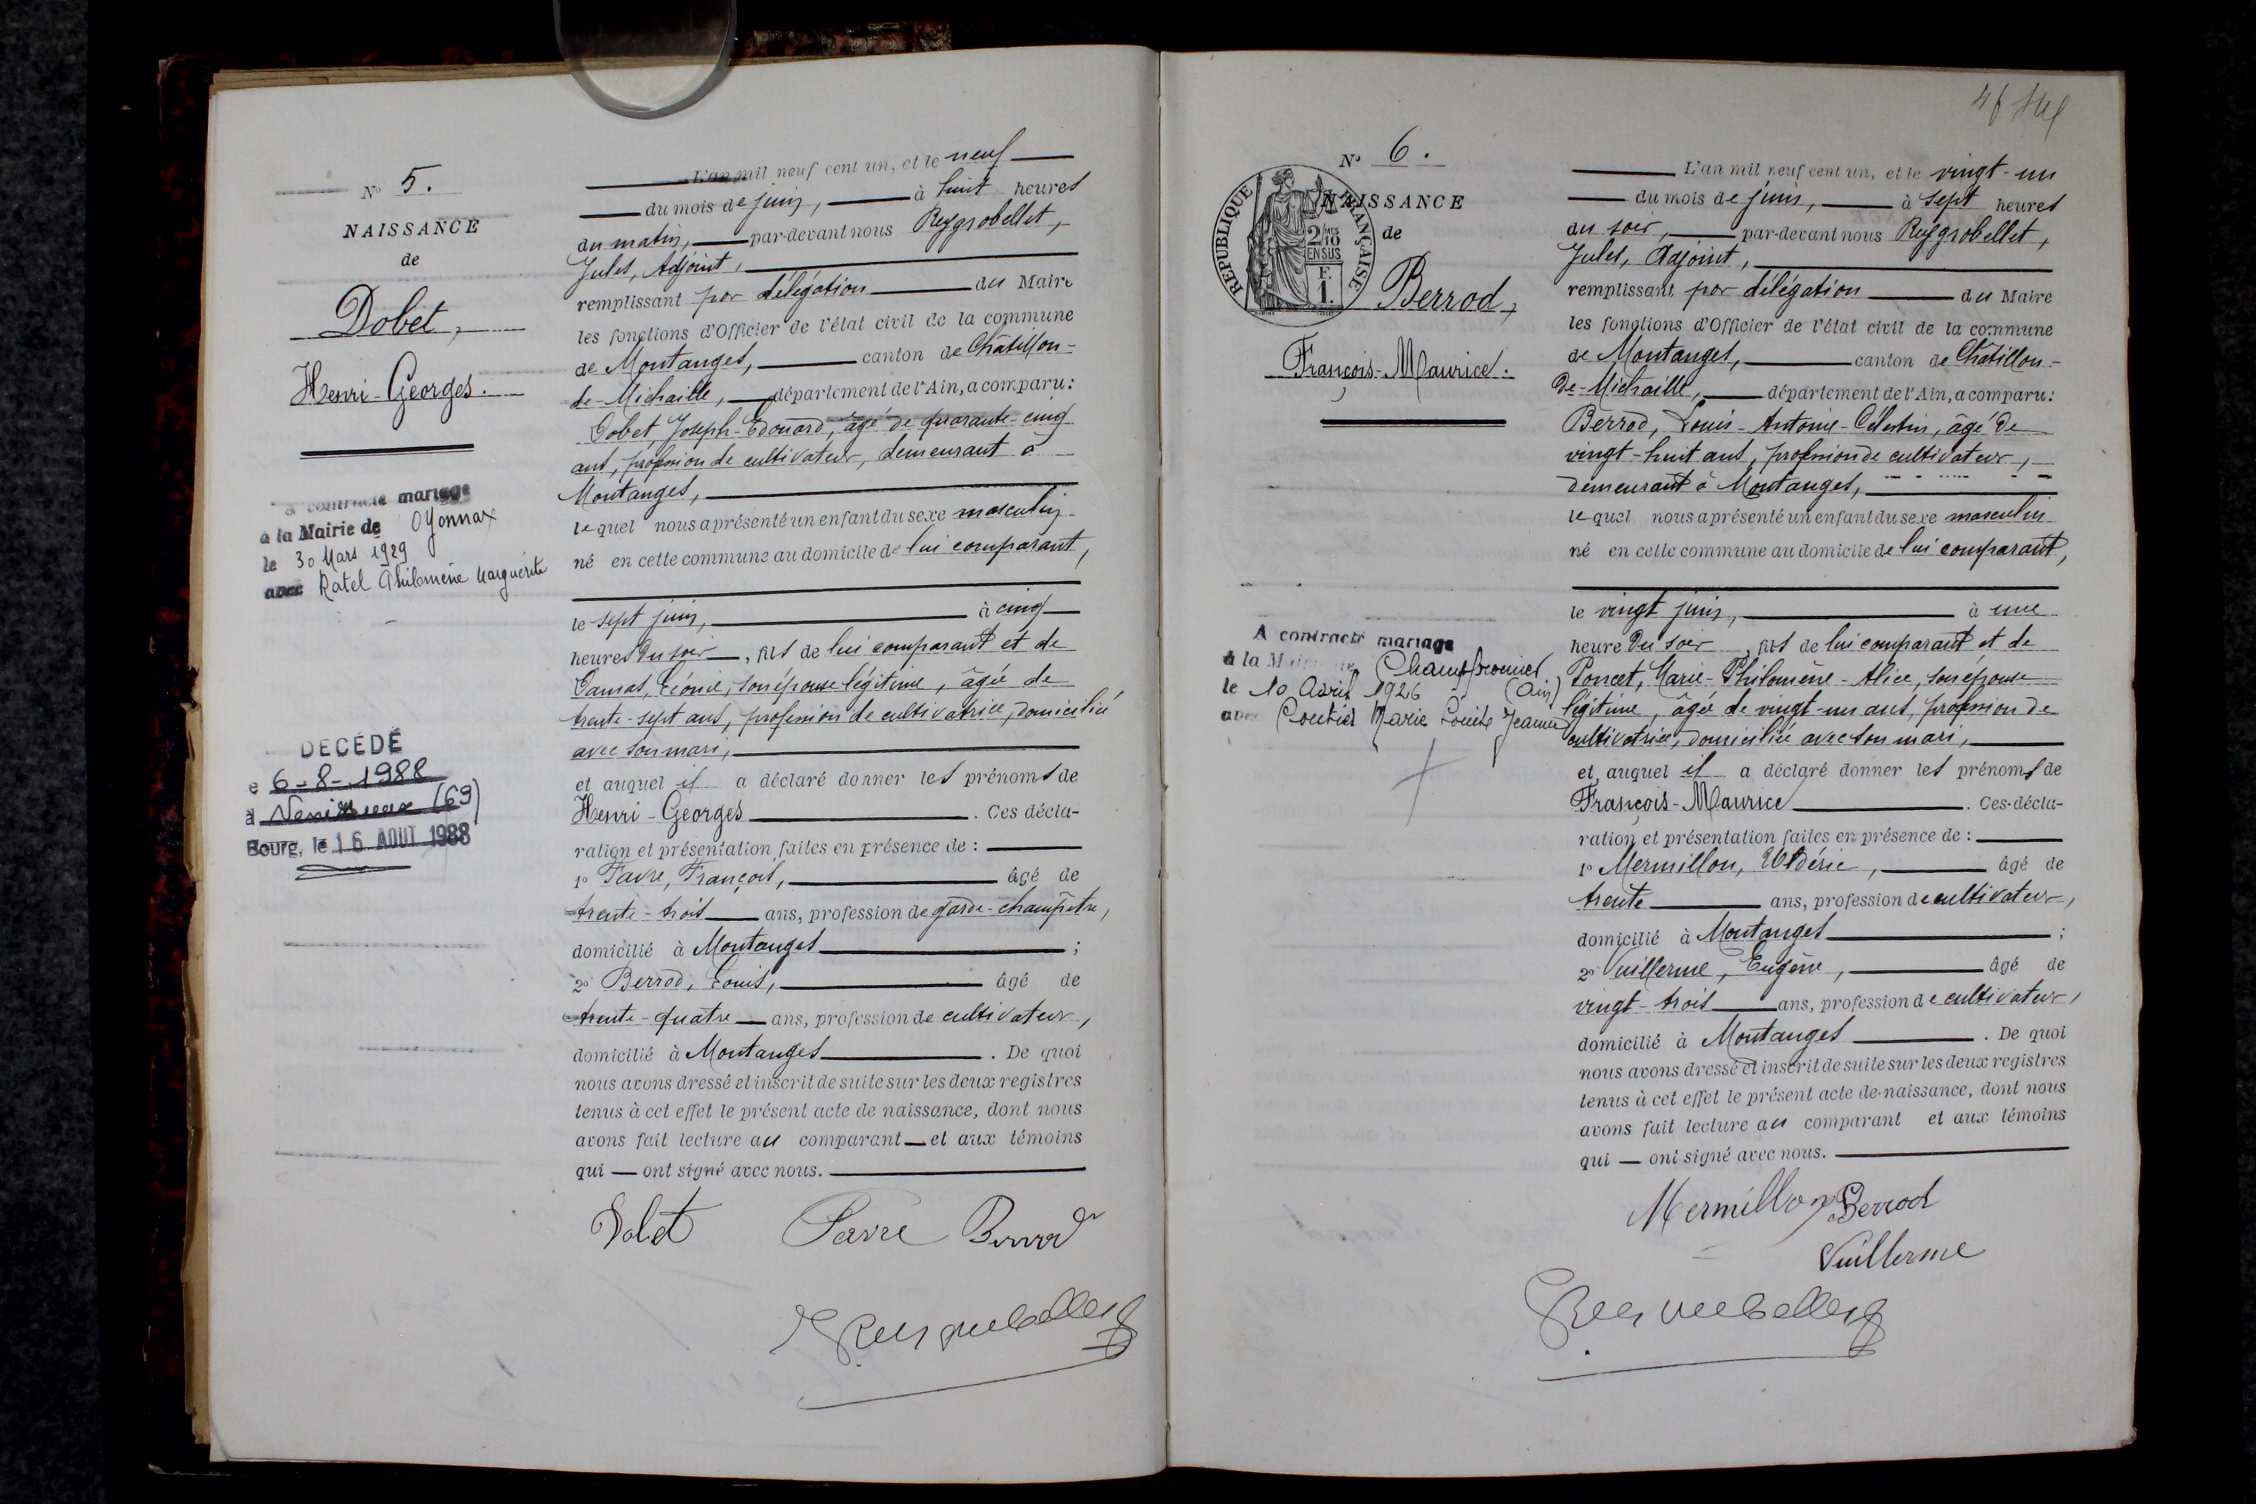 N° 5.
NAISSANCE
de
Dobet,
Henri-Georges.
a contracté mariage
à la Mairie de Oyonnax
le 30 Mars 1929
avec Ratel Philomène Marguerite
DÉCÉDÉ
le 6-8-1988
à Venissieux (69)
Bourg, le 16 AOUT 1988
L'an mil neuf cent un, et le neuf
du mois de juin, à huit heures
du matin, par-devant nous Reygrobellet,
Jules, Adjoint,
remplissant par délégation du Maire
les fonctions d'Officier de l'état civil de la commune
de Montanges, canton de Châtillon-
de-Michaille, département de l'Ain, a comparu:
Dobet, Joseph-Edouard, âgé de quarante-cinq
ans, profession de cultivateur, demeurant à
Montanges,
lequel nous a présenté un enfant du sexe masculin
né en cette commune au domicile de lui comparant,
le sept juin, à cinq
heures du soir, fils de lui comparant et de
Damas, Léonie, son épouse légitime, âgée de
trente-sept ans, profession de cultivatrice, domiciliée
avec son mari,
et auquel il a déclaré donner les prénoms de
Henri-Georges. Ces décla-
ration et présentation faites en présence de :
1° Favre, François, âgé de
trente-trois ans, profession de garde-champêtre,
domicilié à Montanges ;
2° Berrod, Louis, âgé de
trente-quatre ans, profession de cultivateur,
domicilié à Montanges. De quoi
nous avons dressé et inscrit de suite sur les deux registres
tenus à cet effet le présent acte de naissance, dont nous
avons fait lecture au comparant et aux témoins
qui ont signé avec nous.
Dobet Favre Berrod
N° 6.
NAISSANCE
de
RÉPUBLIQUE FRANÇAISE
2/10 EN SUS
Berrod,
François-Maurice.
A contracté mariage
à la Mairie de Champfromier
(Ain)
le 10 Avril 1926
avec Coutier Marie Louise Jeanne
L'an mil neuf cent un, et le vingt-un
du mois de juin, à sept heures
du soir, par-devant nous Reygrobellet,
Jules, Adjoint,
remplissant par délégation du Maire
les fonctions d'Officier de l'état civil de la commune
de Montanges, canton de Châtillon-
de-Michaille, département de l'Ain, a comparu:
Berrod, Louis-Antoine-Célestin, âgé de
vingt-huit ans, profession de cultivateur,
demeurant à Montanges,
lequel nous a présenté un enfant du sexe masculin
né en cette commune au domicile de lui comparant,
le vingt juin, à une
heure du soir, fils de lui comparant et de
Poncet, Marie-Philomène-Alice, son épouse
légitime, âgée de vingt-un ans, profession de
cultivatrice, domiciliée avec son mari,
et auquel il a déclaré donner les prénoms de
François-Maurice. Ces décla-
ration et présentation faites en présence de :
1° Mermillon, Uldéric, âgé de
trente ans, profession de cultivateur,
domicilié à Montanges ;
2° Vuillerme, Eugène, âgé de
vingt-trois ans, profession de cultivateur,
domicilié à Montanges. De quoi
nous avons dressé et inscrit de suite sur les deux registres
tenus à cet effet le présent acte de naissance, dont nous
avons fait lecture au comparant et aux témoins
qui ont signé avec nous.
Mermillon Berrod
Vuillerme